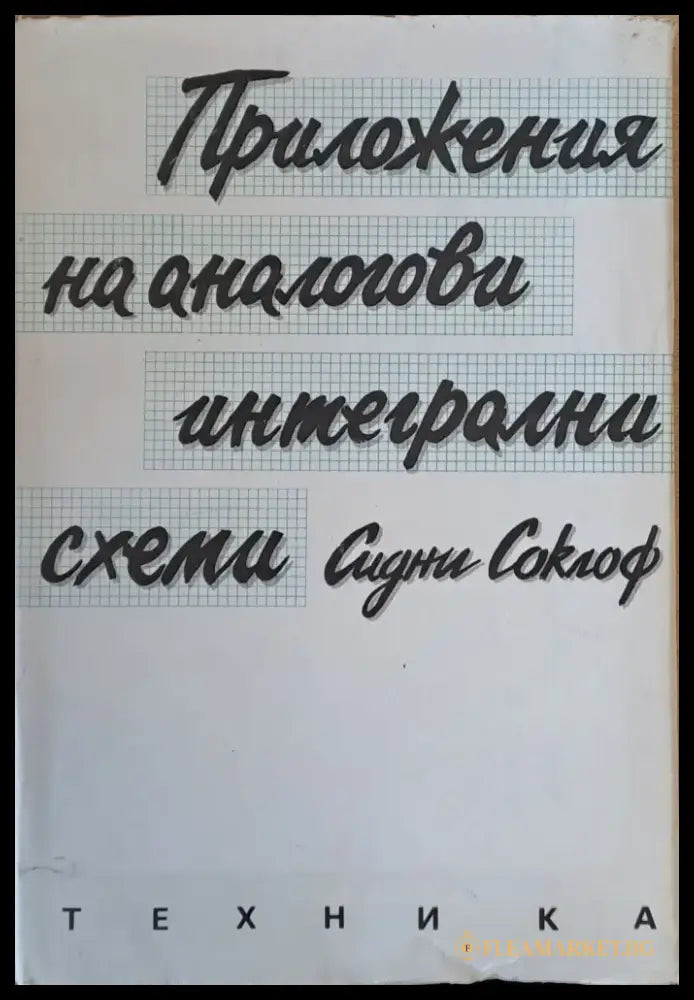 Приложения
на аналогови
интегрални
схеми Сидни Соклоф
ТЕХНИКА
FLEAMARKET.BG